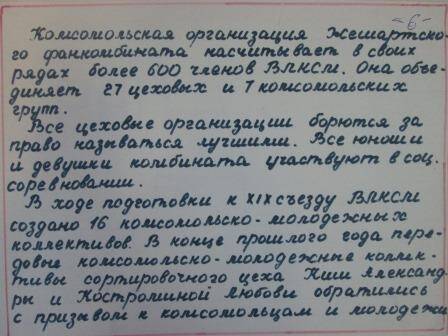 -6-
Комсомольская организация Жешартско-
го фанкомбината насчитывает в своих
рядах более 600 членов ВЛКСМ. Она объе-
диняет 27 цеховых и 7 комсомольских
групп.
Все цеховые организации борются за
право называться лучшими. Все юноши
и девушки комбината участвуют в соц.
соревновании.
В ходе подготовки к XIX съезду ВЛКСМ
создано 16 комсомольско-молодежных
коллективов. В конце прошлого года пере-
довые комсомольско-молодежные коллек-
тивы сортировочного цеха Ким Александ-
ры и Костроминой Любови обратились
с призывом к комсомольцам и молодежи